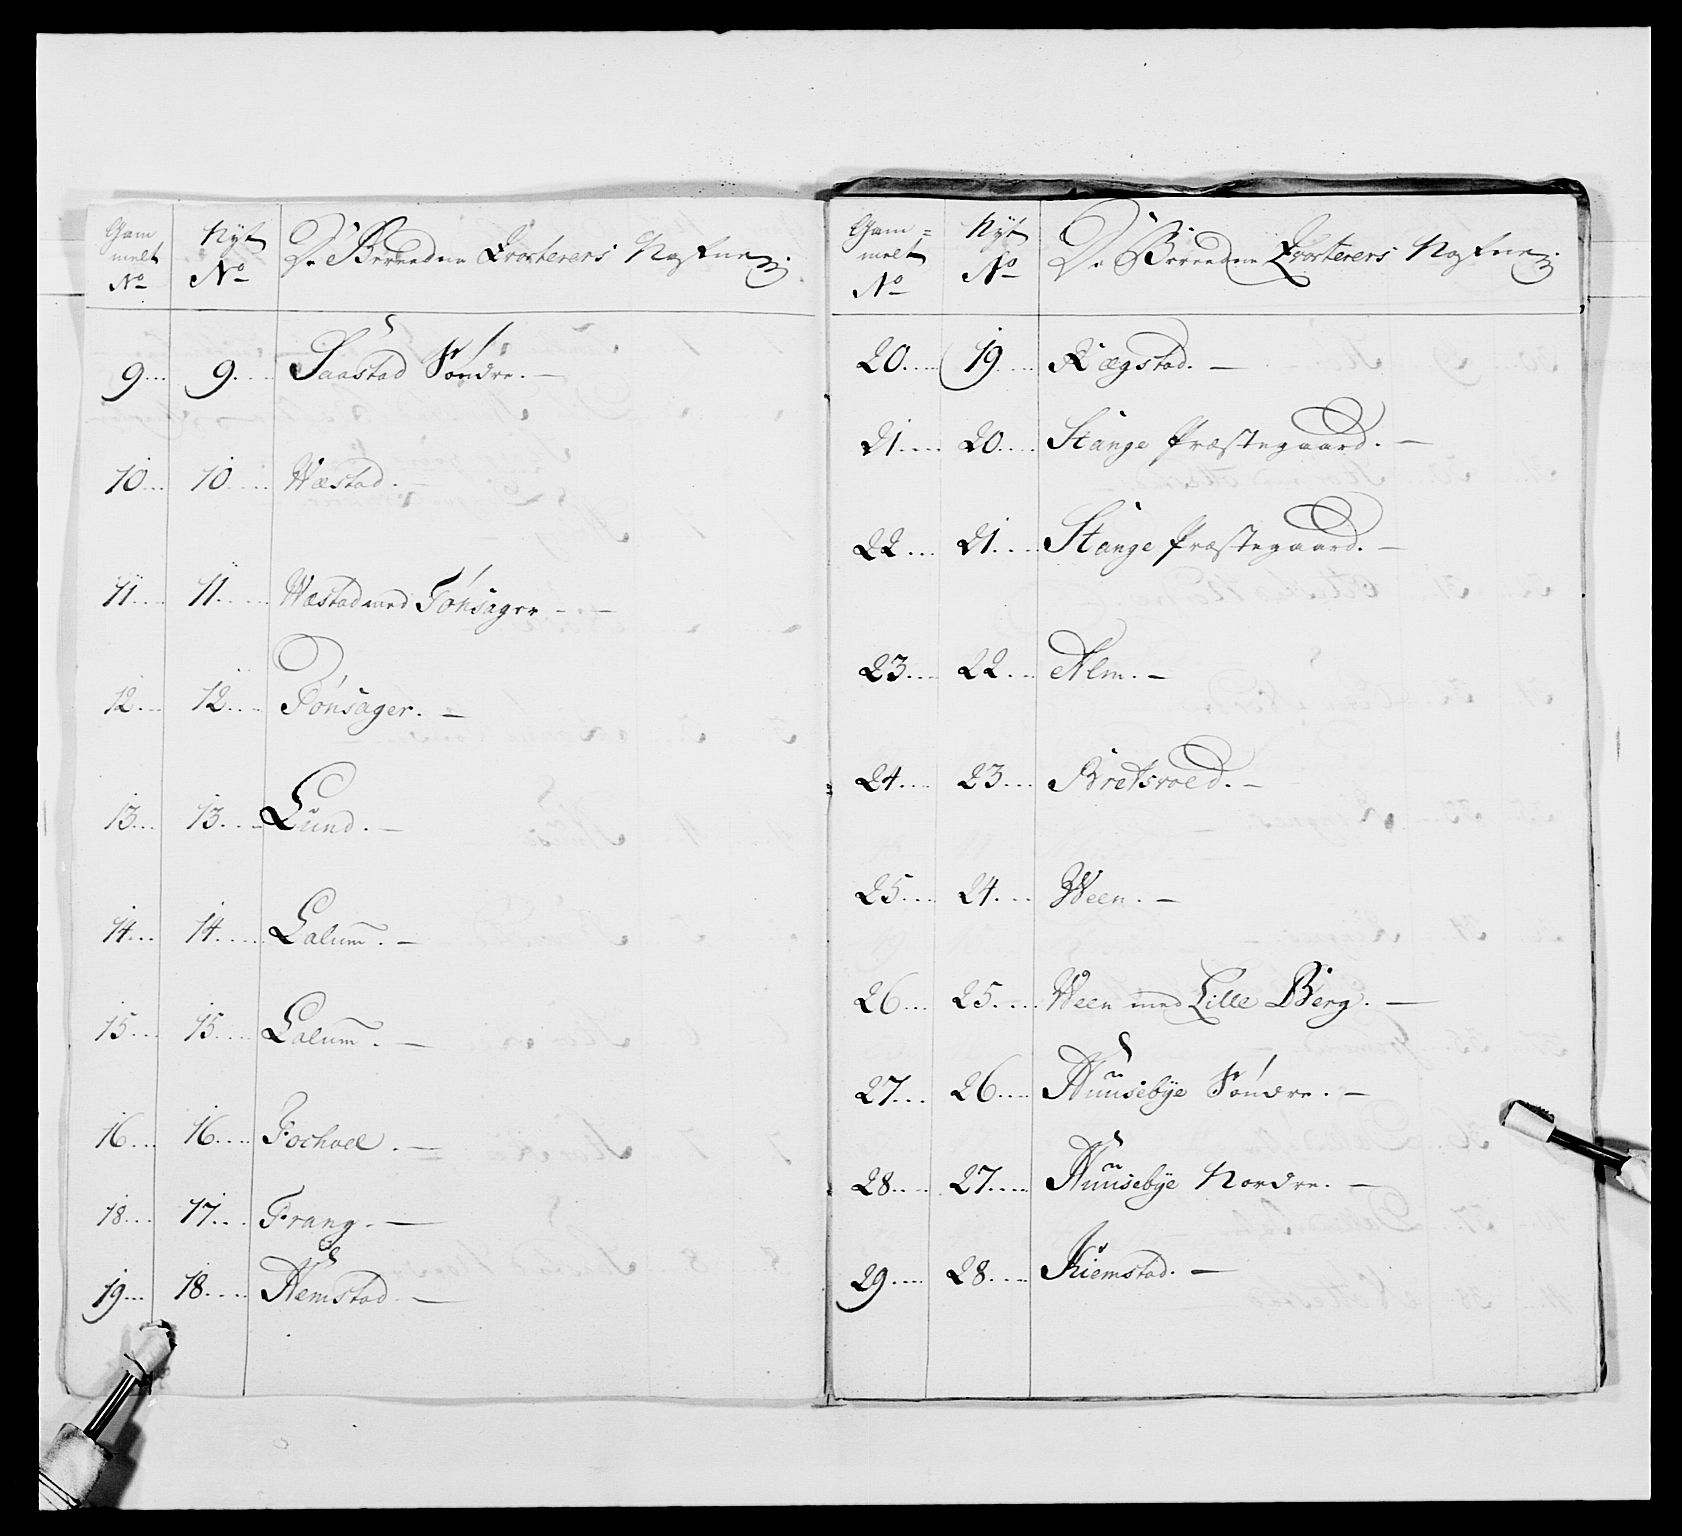 Gam
melt
No
Nyt
No
De Bereedne Qvarterers Nafne
9 9 Saastad Søndre.
10 10 Wæstad.
11 11 Wæstad med Tønsager
12 12 Tønsager.
13 13 Lund.
14 14 Lalum.
15 15 Lalum.
16 16 Fochoel.
18 17 Frang.
19 18 Hemstad
Gam=
melt
No
Nyt
No
De Bereedne Qvarterers Nafne
20 19 Rægstad.
21 20 Stange Præstegaard.
22 21 Stange Præstegaard.
23 22 Alm.
24 23 Bretsroed.
25 24 Ween.
26 25 Ween med Lille Berg.
27 26 Huusebÿe Søndre.
28 27 Huusebÿe Nordre.
29 28 Kiemstad.